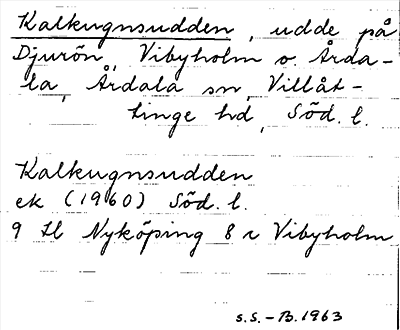 Kalkugnsudden, udde på
Djurön, Vibyholm o. Årda-
la, Årdala sn, Villåt-
tinge hd, Söd. l.
Kalkugnsudden
ek (1960) Söd. l.
9 H Nyköping 8 r Vibyholm
S.S.-B. 1963